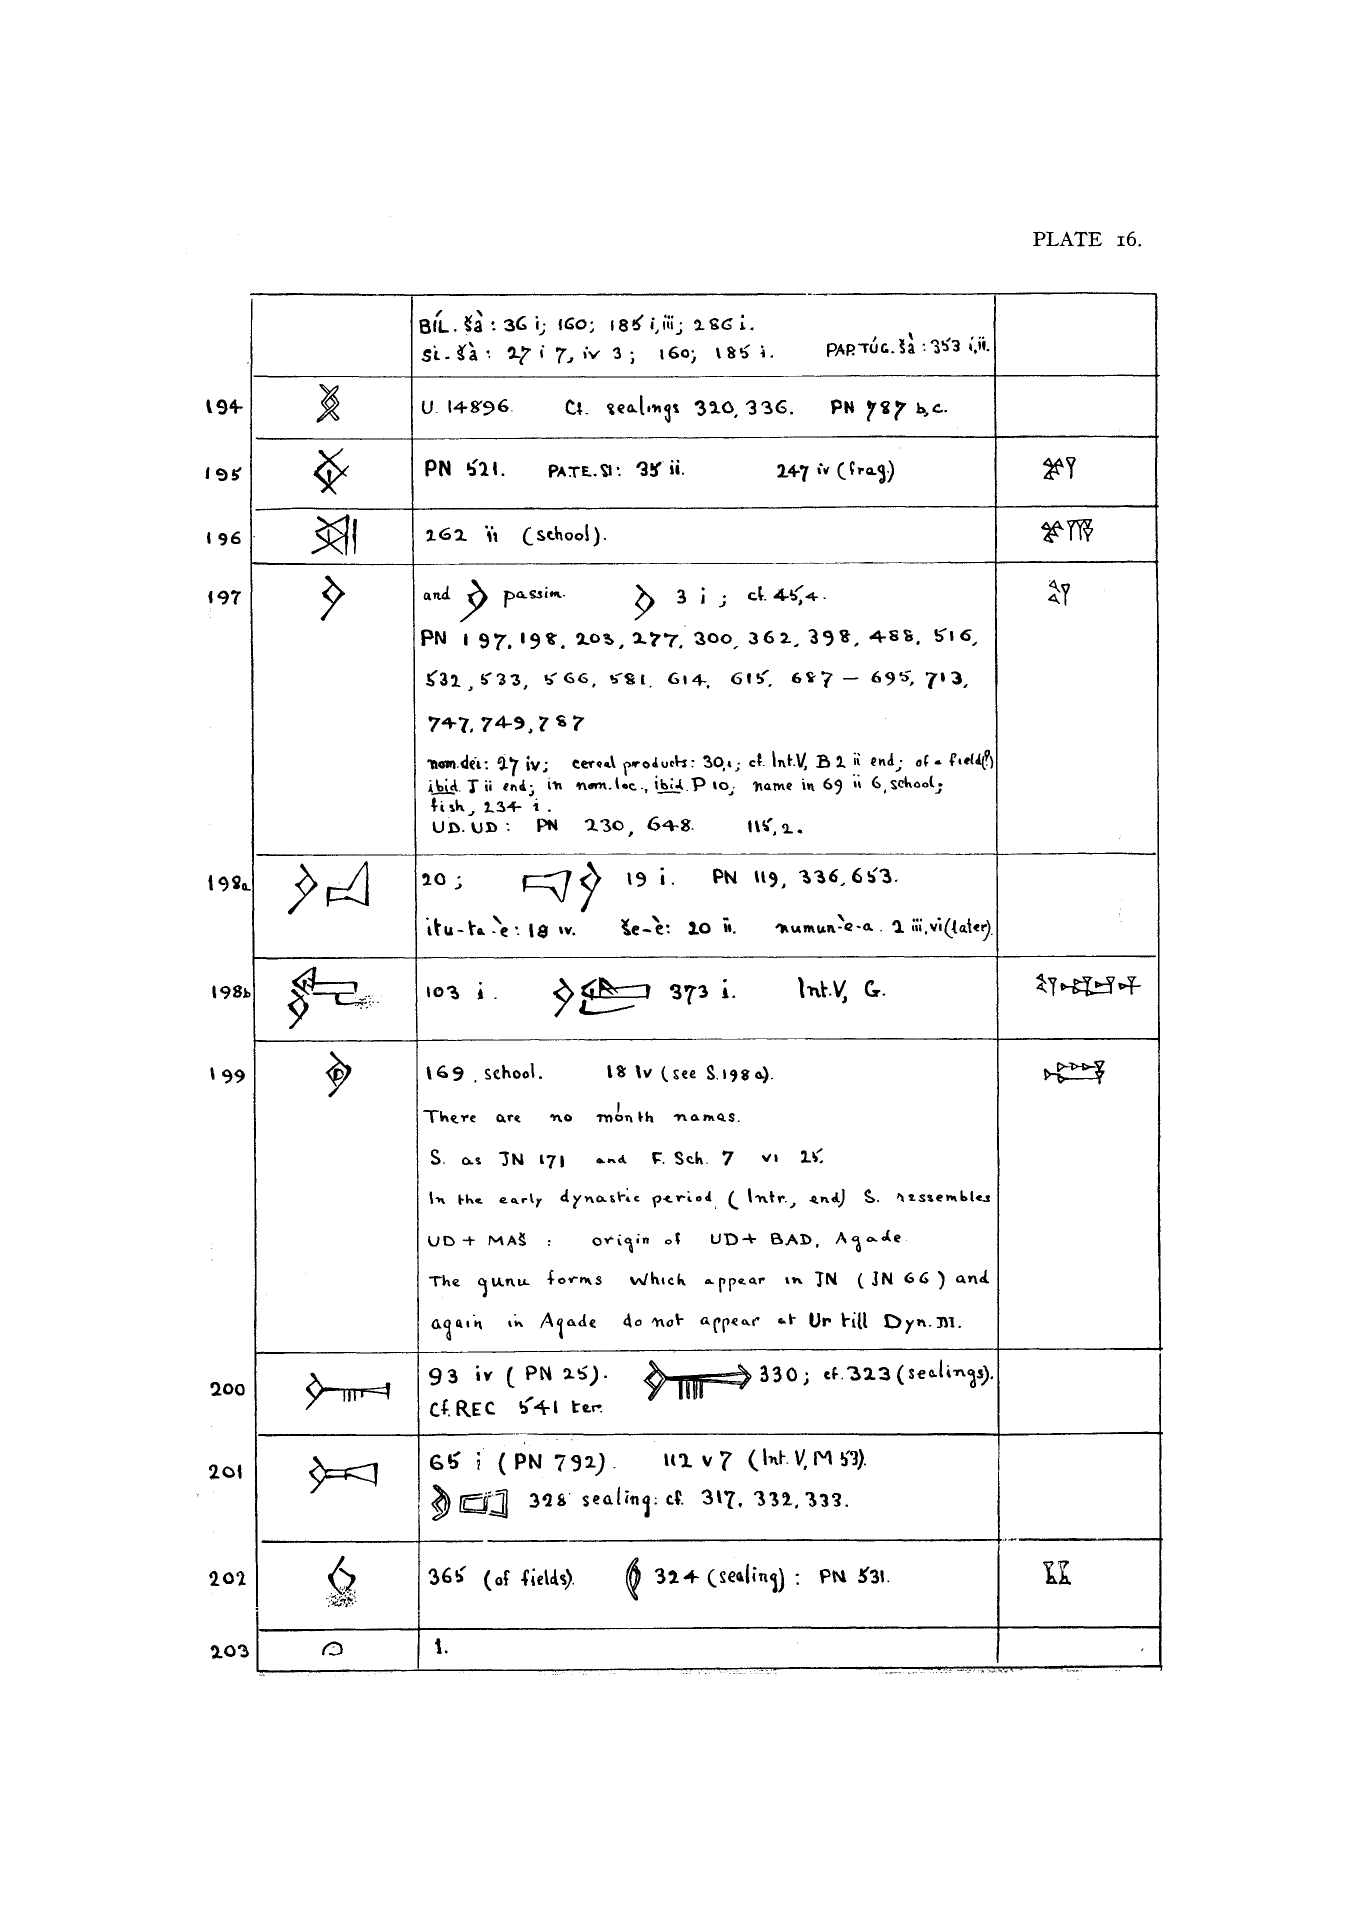 PLATE 16.
BÍL. šà : 36 i; 160; 185 i, iii; 286 i.
SI. šà : 27 i 7, iv 3 ; 160; 185 i. PAP.TÚG. šà : 353 i, ii.
194 U. 14896. Cf. sealings 320, 336. PN 787 b, c.
195 PN 521. PA.TE.SI : 35 ii. 247 iv (frag.)
196 262 ii (school).
197 and passim. 3 i ; cf. 45,4.
PN 197, 198, 203, 277, 300, 362, 398, 488, 516,
532, 533, 566, 581, 614, 615, 687 — 695, 713,
747, 749, 787
nom.dei: 27 iv; cereal products: 30,1; cf. Int.V, B 2 ii end; of a field(?)
ibid. J ii end; in nom.loc., ibid. P 10; name in 69 ii 6, school;
fish, 234 i.
UD.UD : PN 230, 648. 115,2.
198a 20 ; 19 i. PN 119, 336, 653.
itu-ta-è : 18 iv. še-è: 20 ii. numun-è-a. 2 iii, vi (later).
198b 103 i. 373 i. Int.V, G.
199 169, school. 18 iv (see S.198a).
There are no month names.
S. as JN 171 and F. Sch. 7 vi 25.
In the early dynastic period, (Intr., end) S. ressembles
UD + MAŠ : origin of UD + BAD, Agade.
The gunu forms which appear in JN (JN 66) and
again in Agade do not appear at Ur till Dyn. III.
200 93 iv (PN 25). 330 ; cf. 323 (sealings).
Cf. REC 541 ter.
201 65 i (PN 792). 112 v 7 (Int. V, M 53).
328 sealing: cf. 317, 332, 333.
202 365 (of fields). 324 (sealing) : PN 531.
203 1.